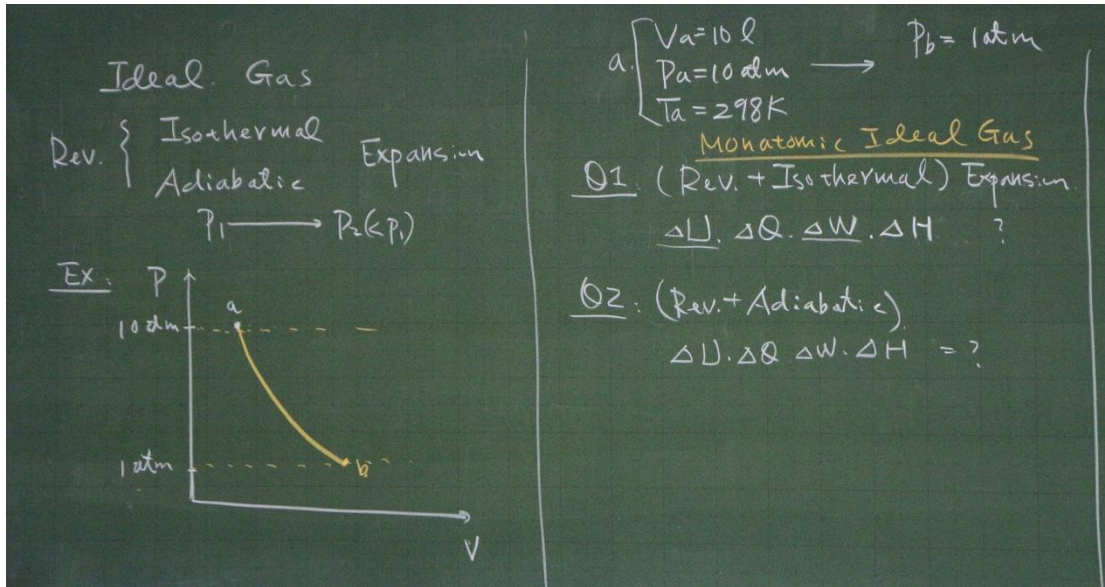 Ideal. Gas
Rev. { Isothermal
Adiabatic
Expansion
P₁ ⟶ P₂(<P₁)
Ex:
P
a
10 atm
1 atm
b
V
a. Va=10 l
Pa=10 atm ⟶ Pb= 1 atm
Ta=298K
Monatomic Ideal Gas
Q1: (Rev. + Isothermal) Expansion.
ΔU. ΔQ. ΔW. ΔH ?
Q2: (Rev.+ Adiabatic).
ΔU. ΔQ ΔW. ΔH = ?